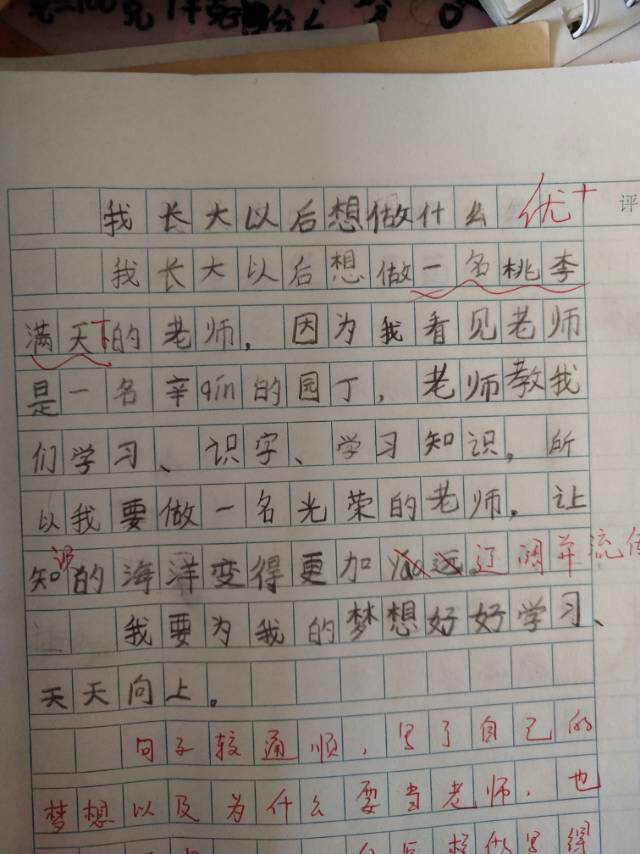 我长大以后想做什么 优+ 评
我长大以后想做一名桃李
满天下的老师，因为我看见老师
是一名辛qin的园丁，老师教我
们学习、识字、学习知识，所
以我要做一名光荣的老师，让
知识的海洋变得更加 辽阔并流传
我要为我的梦想好好学习、
天天向上。
句子较通顺，写了自己的
梦想以及为什么要当老师，也